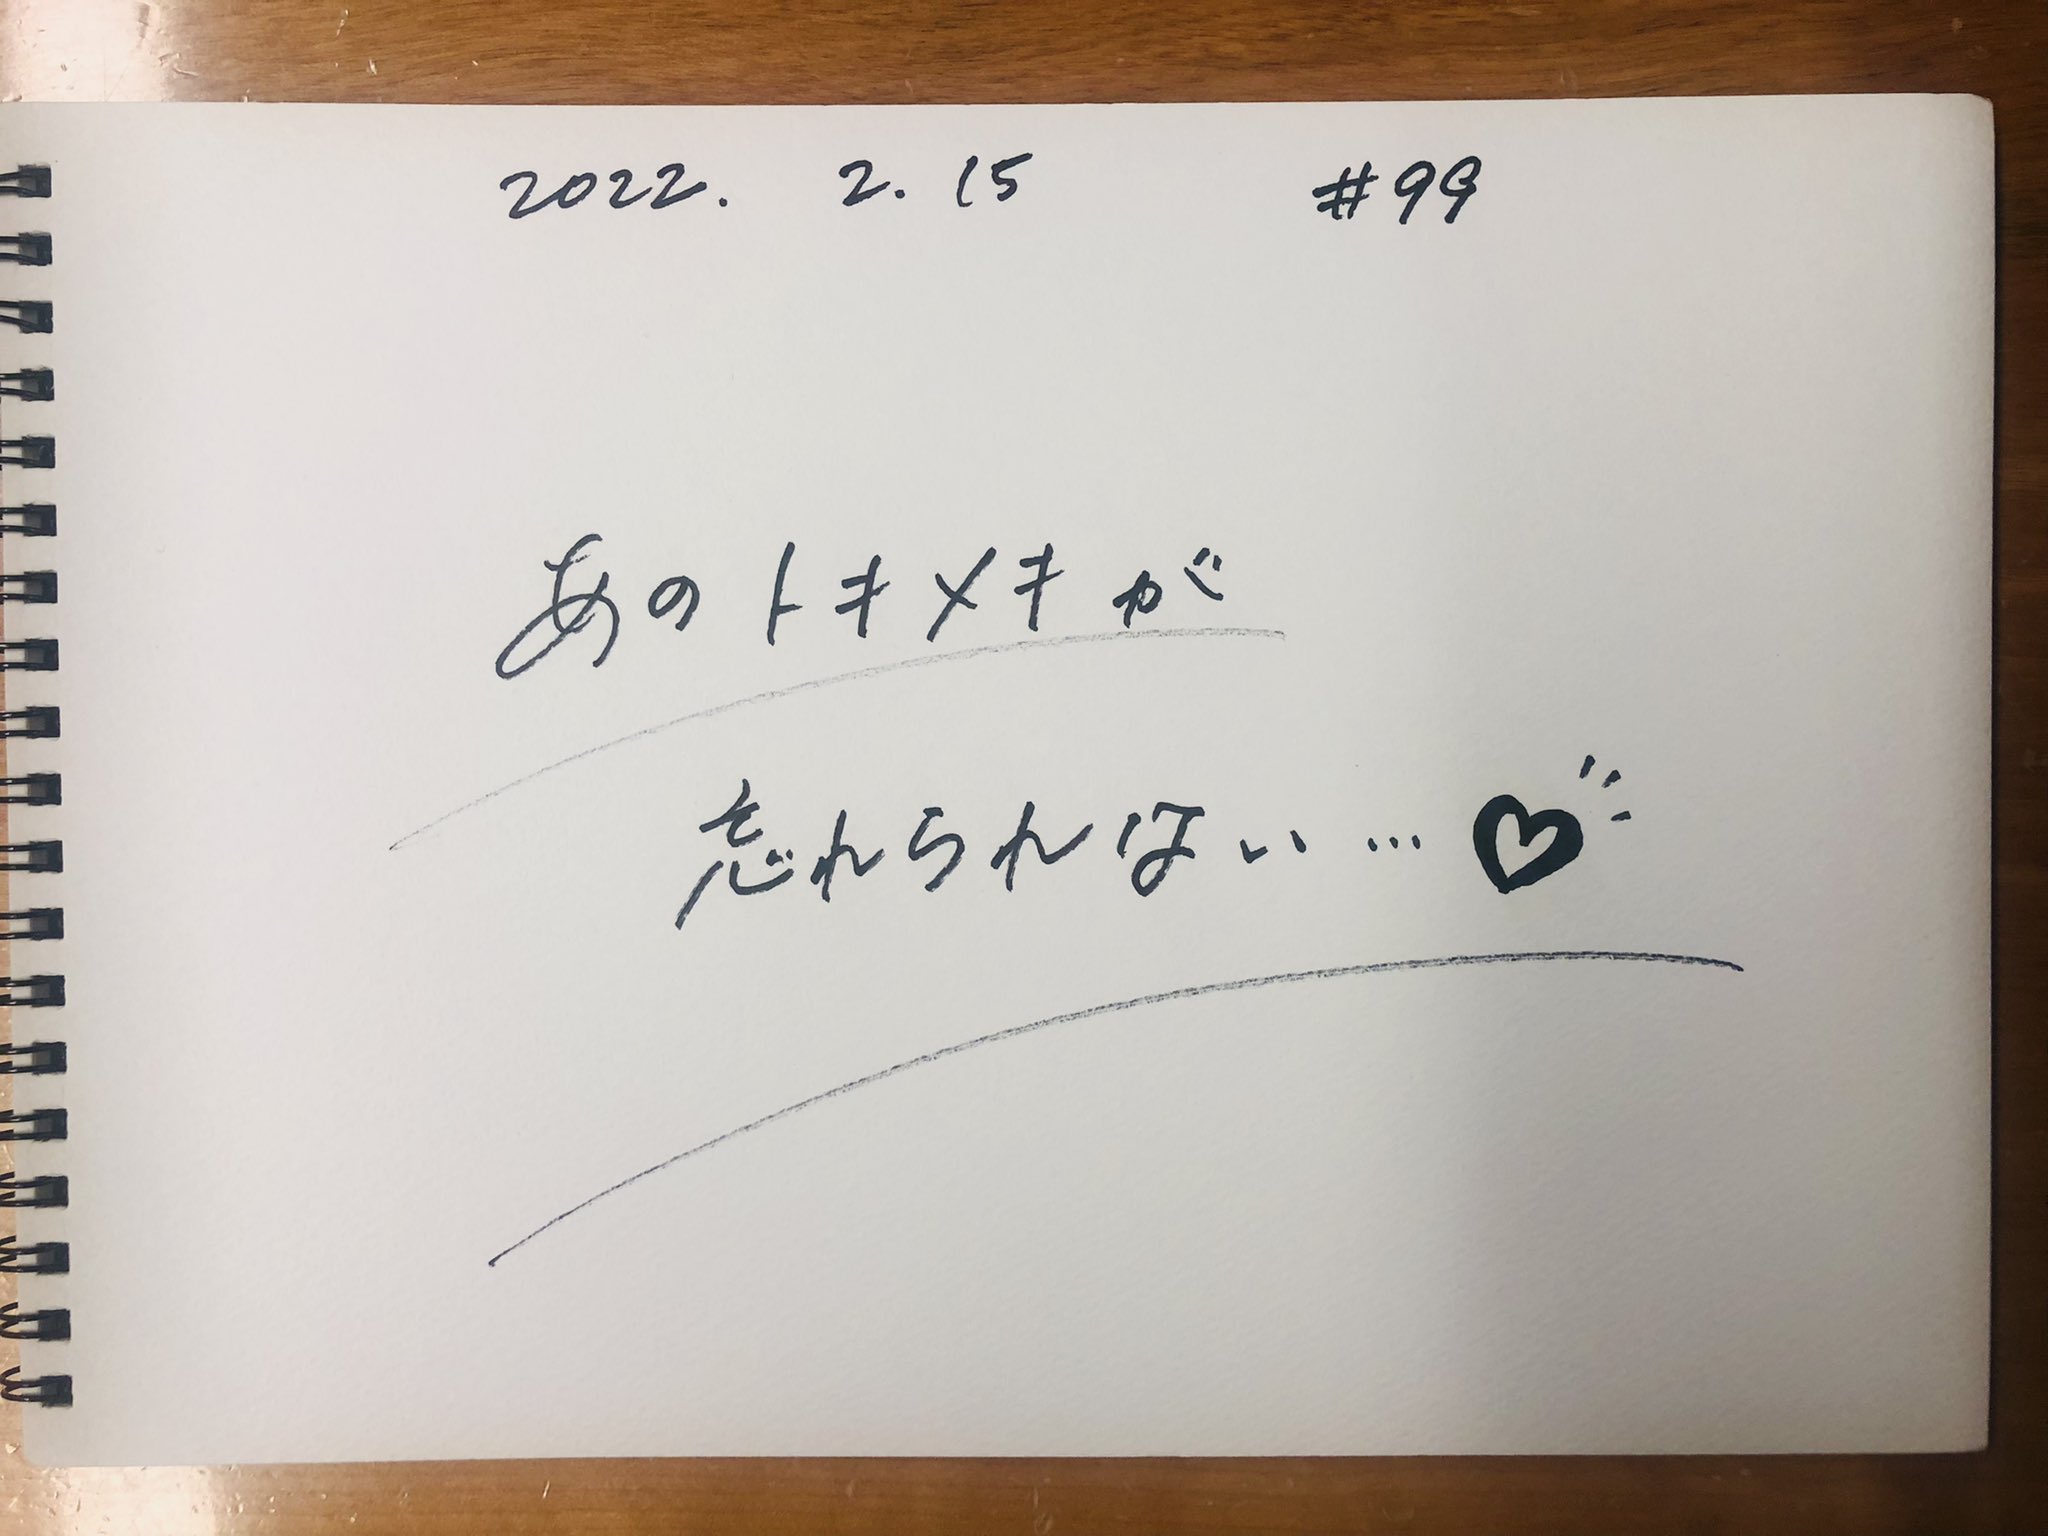 2022. 2. 15 #99
あのトキメキが
忘れられない…♡